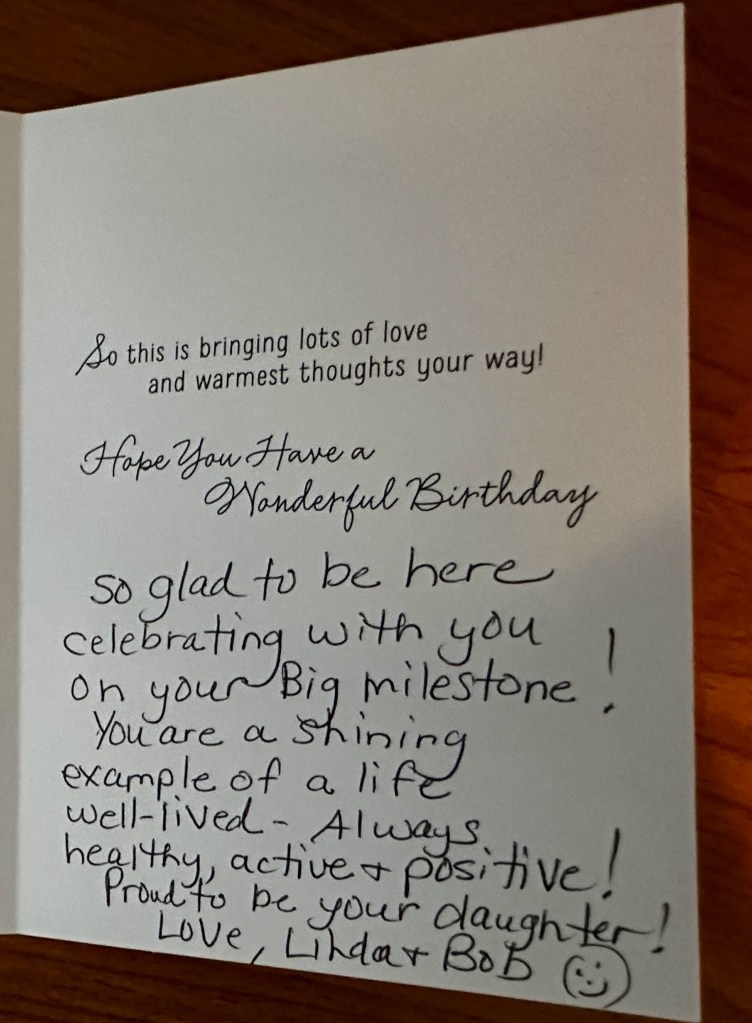 So this is bringing lots of love
and warmest thoughts your way!
Hope You Have a
Wonderful Birthday
so glad to be here
celebrating with you
on your Big milestone!
You are a shining
example of a life
well-lived - Always
healthy, active + positive!
Proud to be your daughter!
Love, Linda + Bob